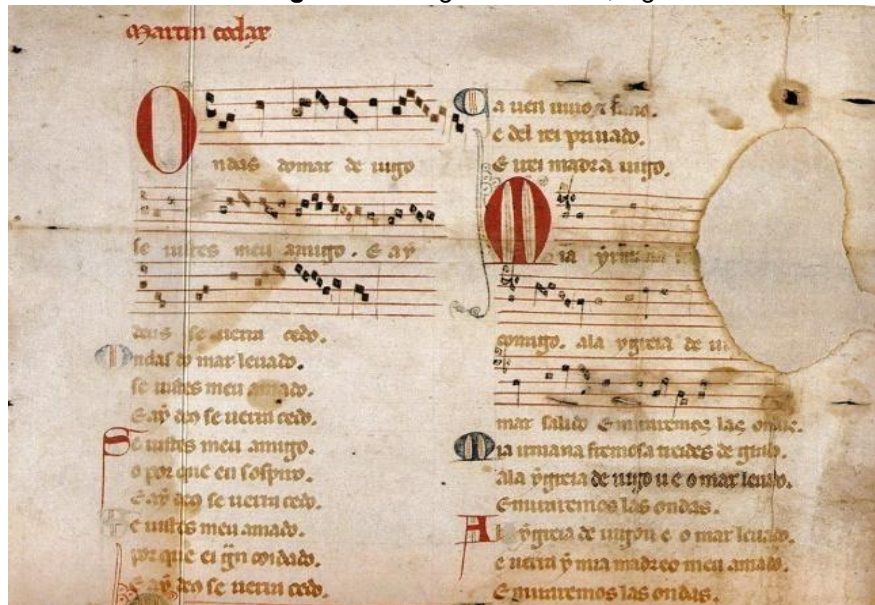 Martin codax
Ondas domar de uigo
se uistes meu amigo. E ay
deus se uerra cedo.
Ondas do mar leuado.
se uistes meu amado.
E ay deo se uerra cedo.
Se uistes meu amigo.
o por que eu sospiro
E ay deo se uerra cedo.
Se uistes meu amado.
por que ei gran coidado.
E ay deo se uerra cedo.
Ca uen uiuo e sano.
e del rei priuado.
E irei madra uigo.
Mia yrmana
comigo. ala ygreia de
mar salido E miraremos las ondas.
Mia irmana fremosa treides de grado.
ala ygreia de uigo u e o mar leuado.
E miraremos las ondas.
A la ygreia de uigo u e o mar leuado.
e uerra y mia madreo meu amado.
E miraremos las ondas.